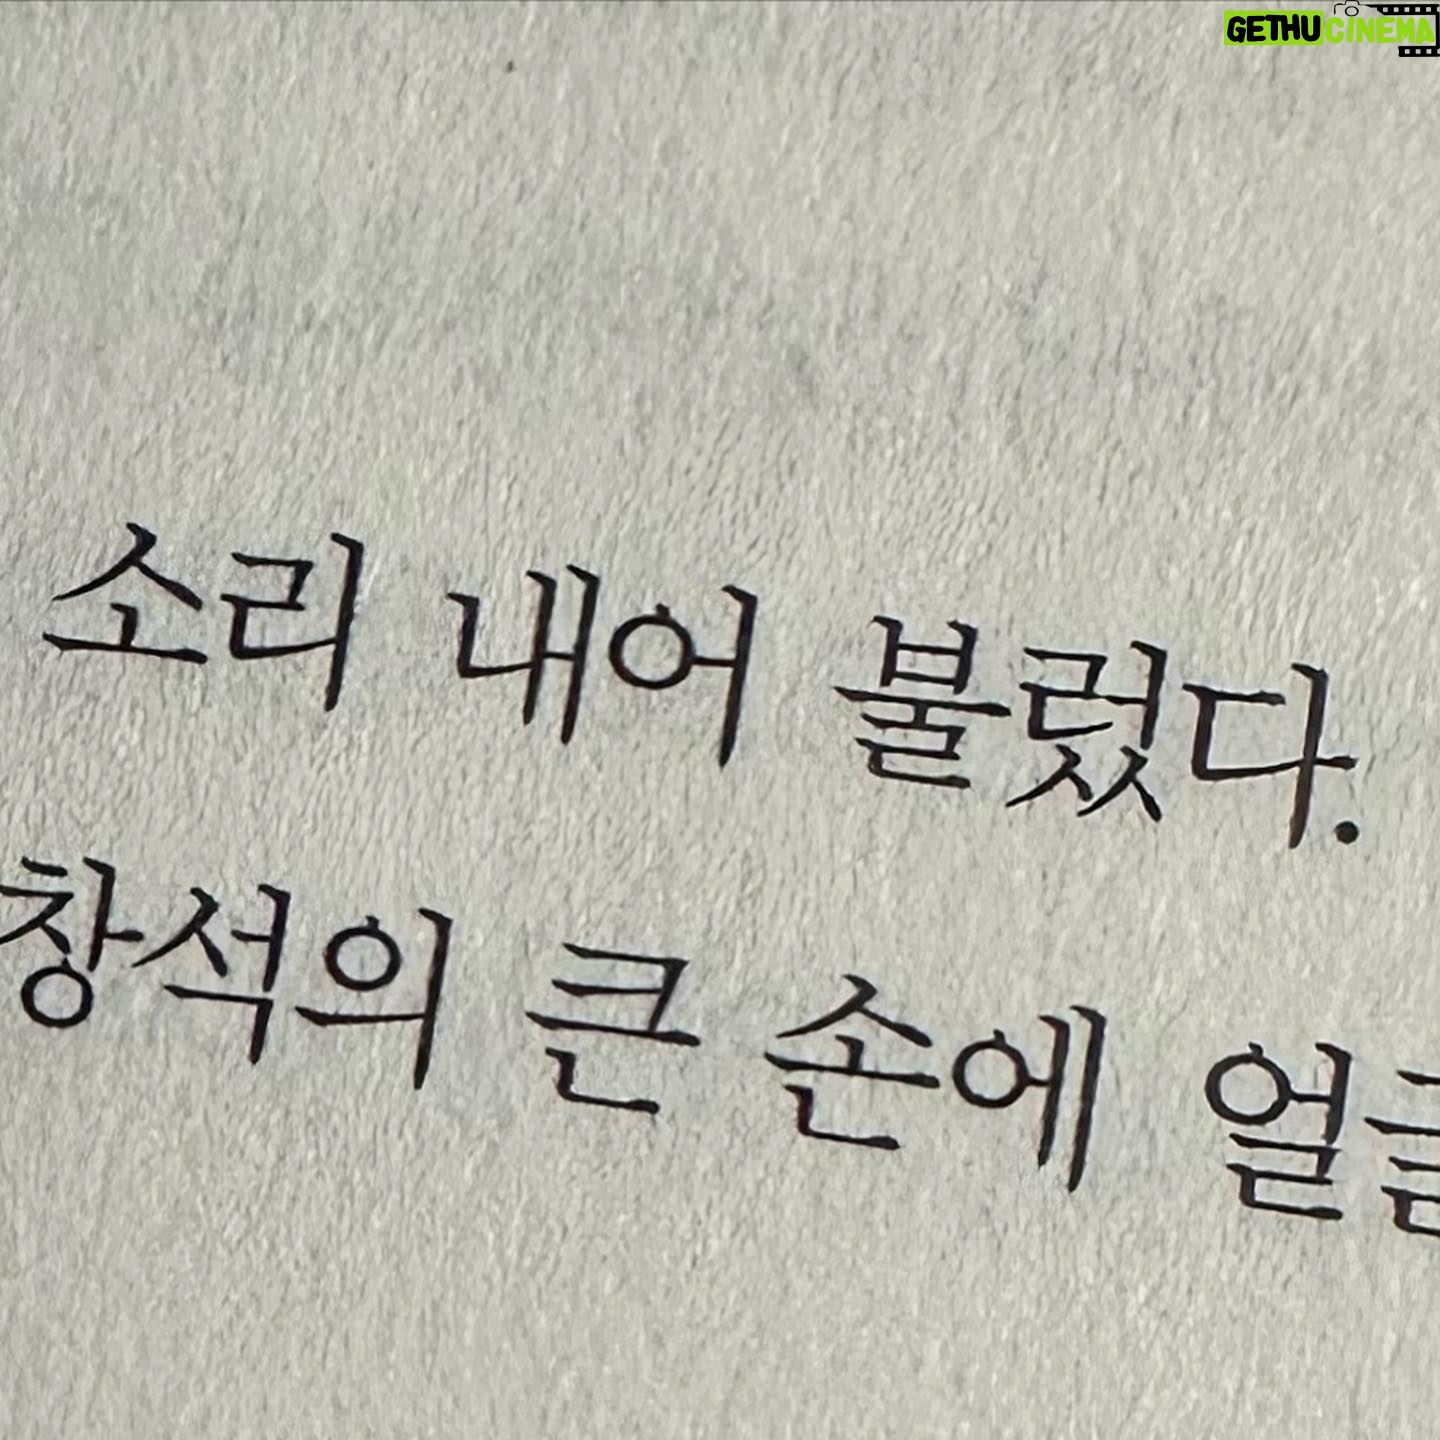 GETHUCINEMA
소리 내어 불렀다.
창석의 큰 손에